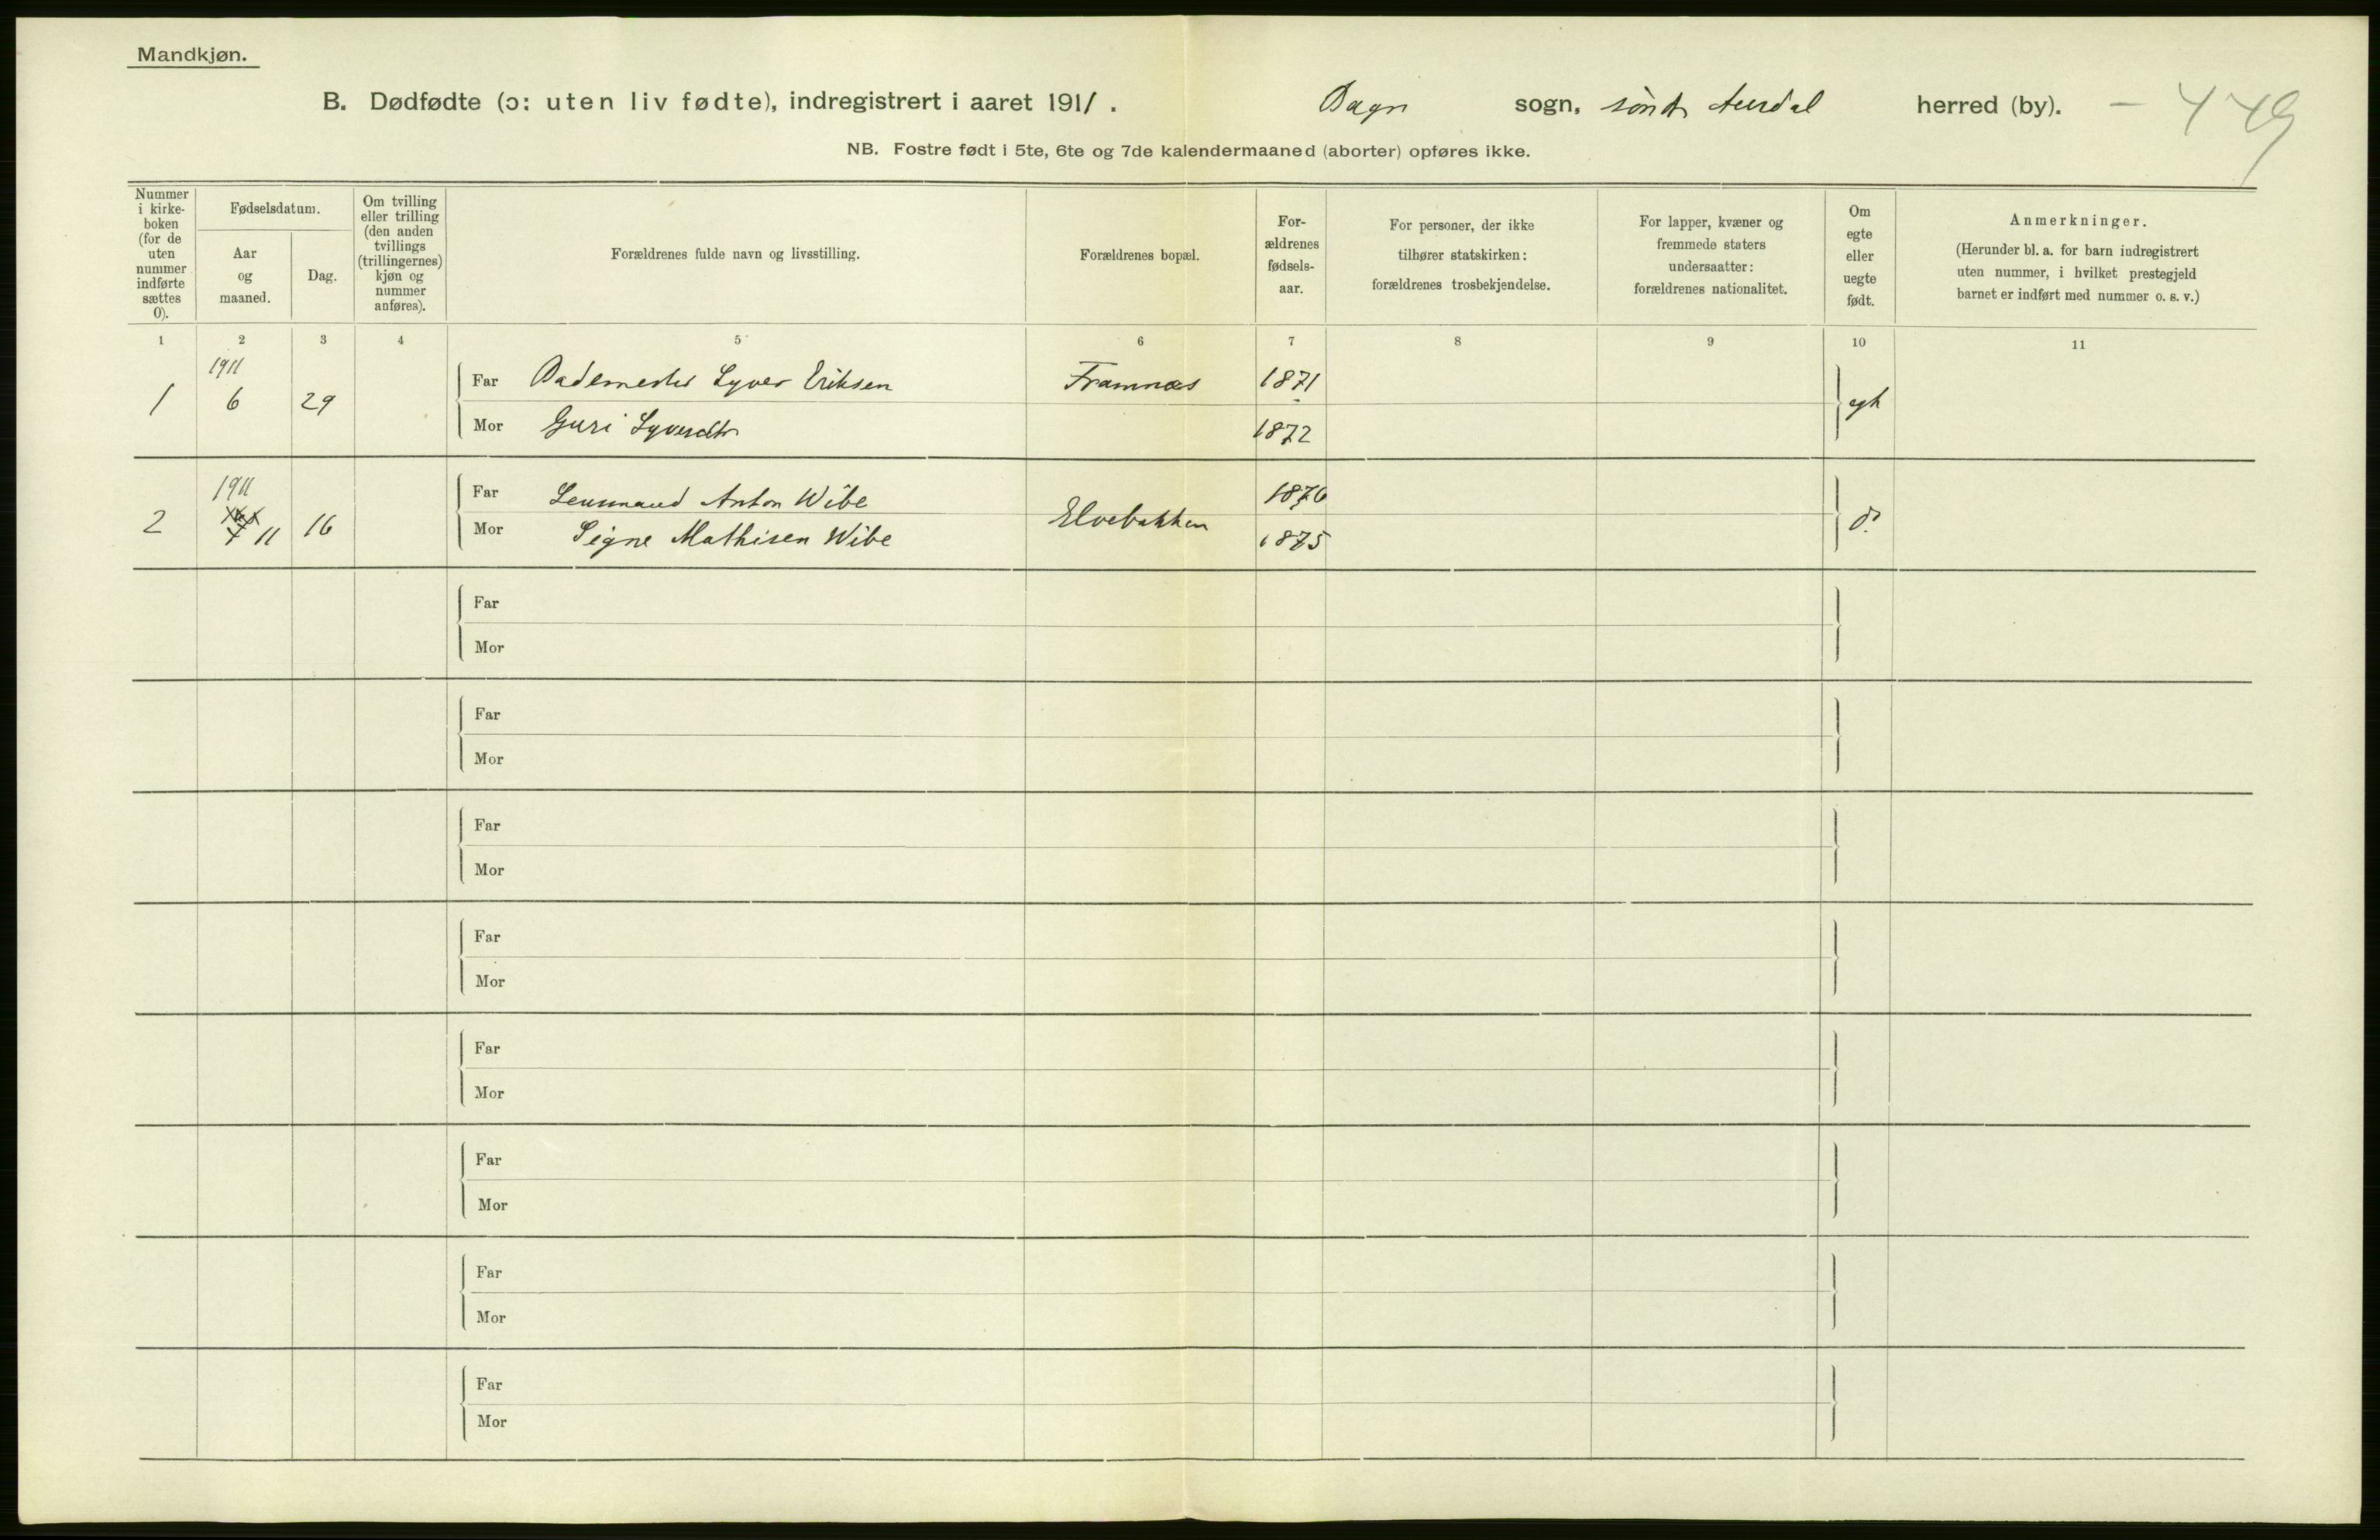 Mandkjøn.
B. Dødfødte (ɔ: uten liv fødte), indregistrert i aaret 1911. Bagn sogn, søndr Aurdal herred (by). — 449
NB. Fostre født i 5te, 6te og 7de kalendermaaned (aborter) opføres ikke.
Nummer i kirke- boken (for de uten nummer indførte sættes 0).
Fødselsdatum.
Aar og maaned.
Dag.
Om tvilling eller trilling (den anden tvillings (trillingernes) kjøn og nummer anføres).
Forældrenes fulde navn og livsstilling.
Forældrenes bopæl.
For- ældrenes fødsels- aar.
For personer, der ikke tilhører statskirken: forældrenes trosbekjendelse.
For lapper, kvæner og fremmede staters undersaatter: forældrenes nationalitet.
Om egte eller uegte født.
Anmerkninger.
(Herunder bl. a. for barn indregistrert uten nummer, i hvilket prestegjeld barnet er indført med nummer o. s. v.)
1 2 3 4 5 6 7 8 9 10 11
1911
1 6 29
Far Bademester Syver Eriksen Framnæs 1871
egte
Mor Guri Syversdtr 1872
1911
2 11 16
Far Lensmand Anton Wibe 1876
Elvebakken do
Mor Signe Mathisen Wibe 1875
Far
Mor
Far
Mor
Far
Mor
Far
Mor
Far
Mor
Far
Mor
Far
Mor
Far
Mor